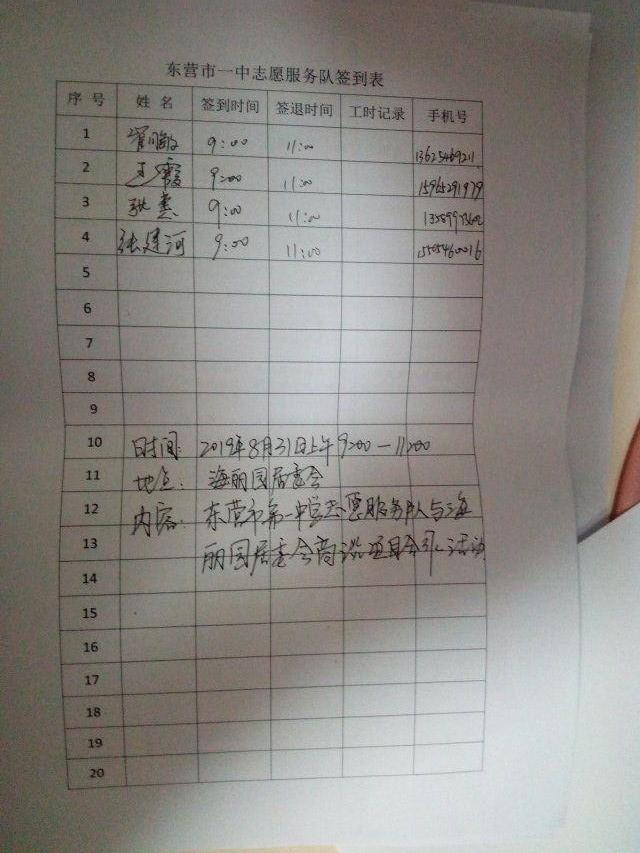 东营市一中志愿服务队签到表
序号 姓名 签到时间 签退时间 工时记录 手机号
1 9:00 11:00
2 王霞 9:00 11:00 15965291979
3 9:00 11:00
4 张建河 9:00 11:00
5
6
7
8
9
10 时间: 2019年8月31日上午9:00—11:00
11 地点: 海丽园居委会
12 内容: 东营市第一中学志愿服务队与海
13 丽园居委会商谈项目合作活动
14
15
16
17
18
19
20